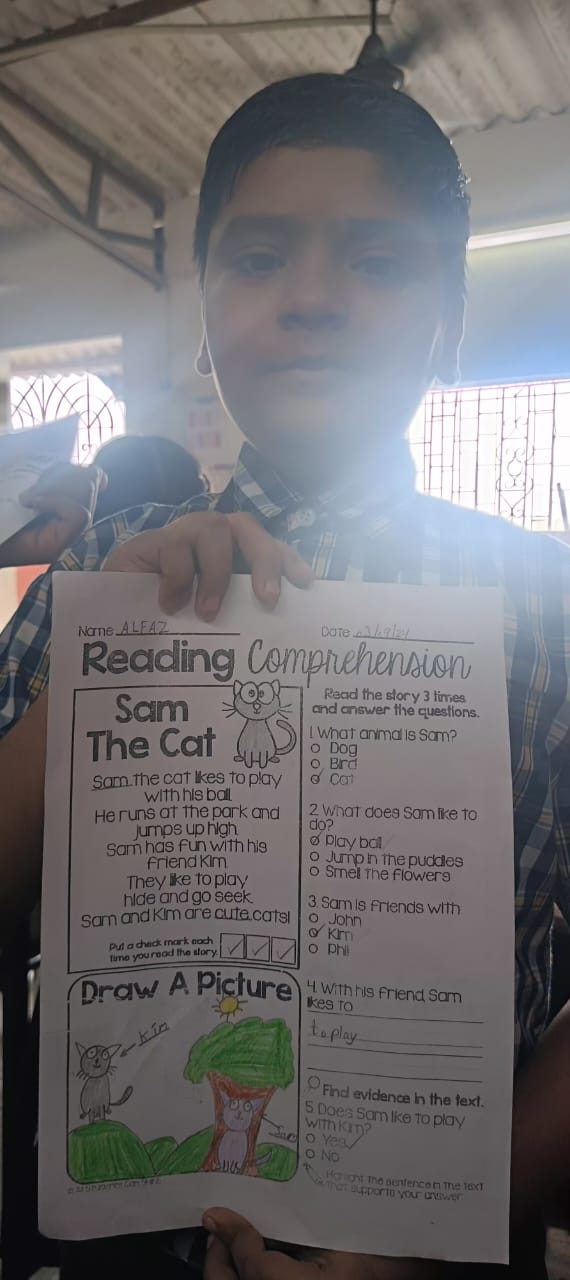 Name ALFAZ
Date 03/09/24
Reading Comprehension
Sam
The Cat
Sam the cat likes to play
with his ball.
He runs at the park and
jumps up high.
Sam has fun with his
friend Kim.
They like to play
hide and go seek.
Sam and Kim are cute cats!
Put a check mark each
time you read the story.
Draw A Picture
Kim
Sam
Read the story 3 times
and answer the questions.
1. What animal is Sam?
Dog
Bird
Cat
2. What does Sam like to
do?
Play ball
Jump in the puddles
Smell the flowers
3. Sam is friends with
John
Kim
Phil
4. With his friend, Sam
likes to
to play
Find evidence in the text.
5. Does Sam like to play
with Kim?
Yes
No
Highlight the sentence in the text
that supports your answer